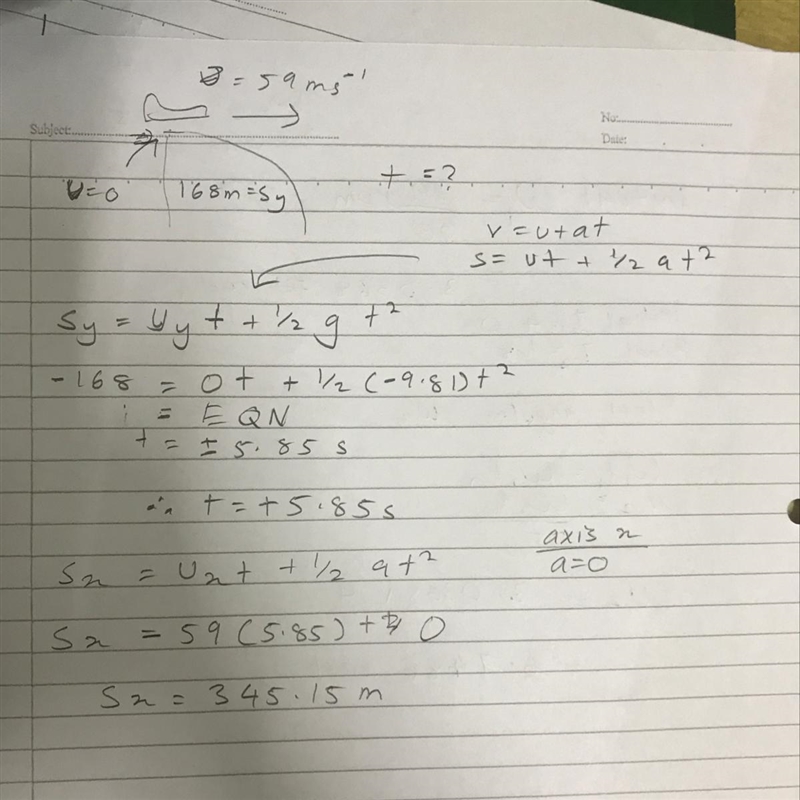 1
= 59 ms⁻¹
Subject:
No:
Date:
U=0
168m = Sy
t = ?
v = u + at
s = ut + 1/2 at²
Sy = Uy t + 1/2 g t²
-168 = 0t + 1/2 (-9.81)t²
= EQN
t = ± 5.85 s
∴ t = +5.85s
axis x
a=0
Sx = Uxt + 1/2 at²
Sx = 59 (5.85) + 0
Sx = 345.15 m